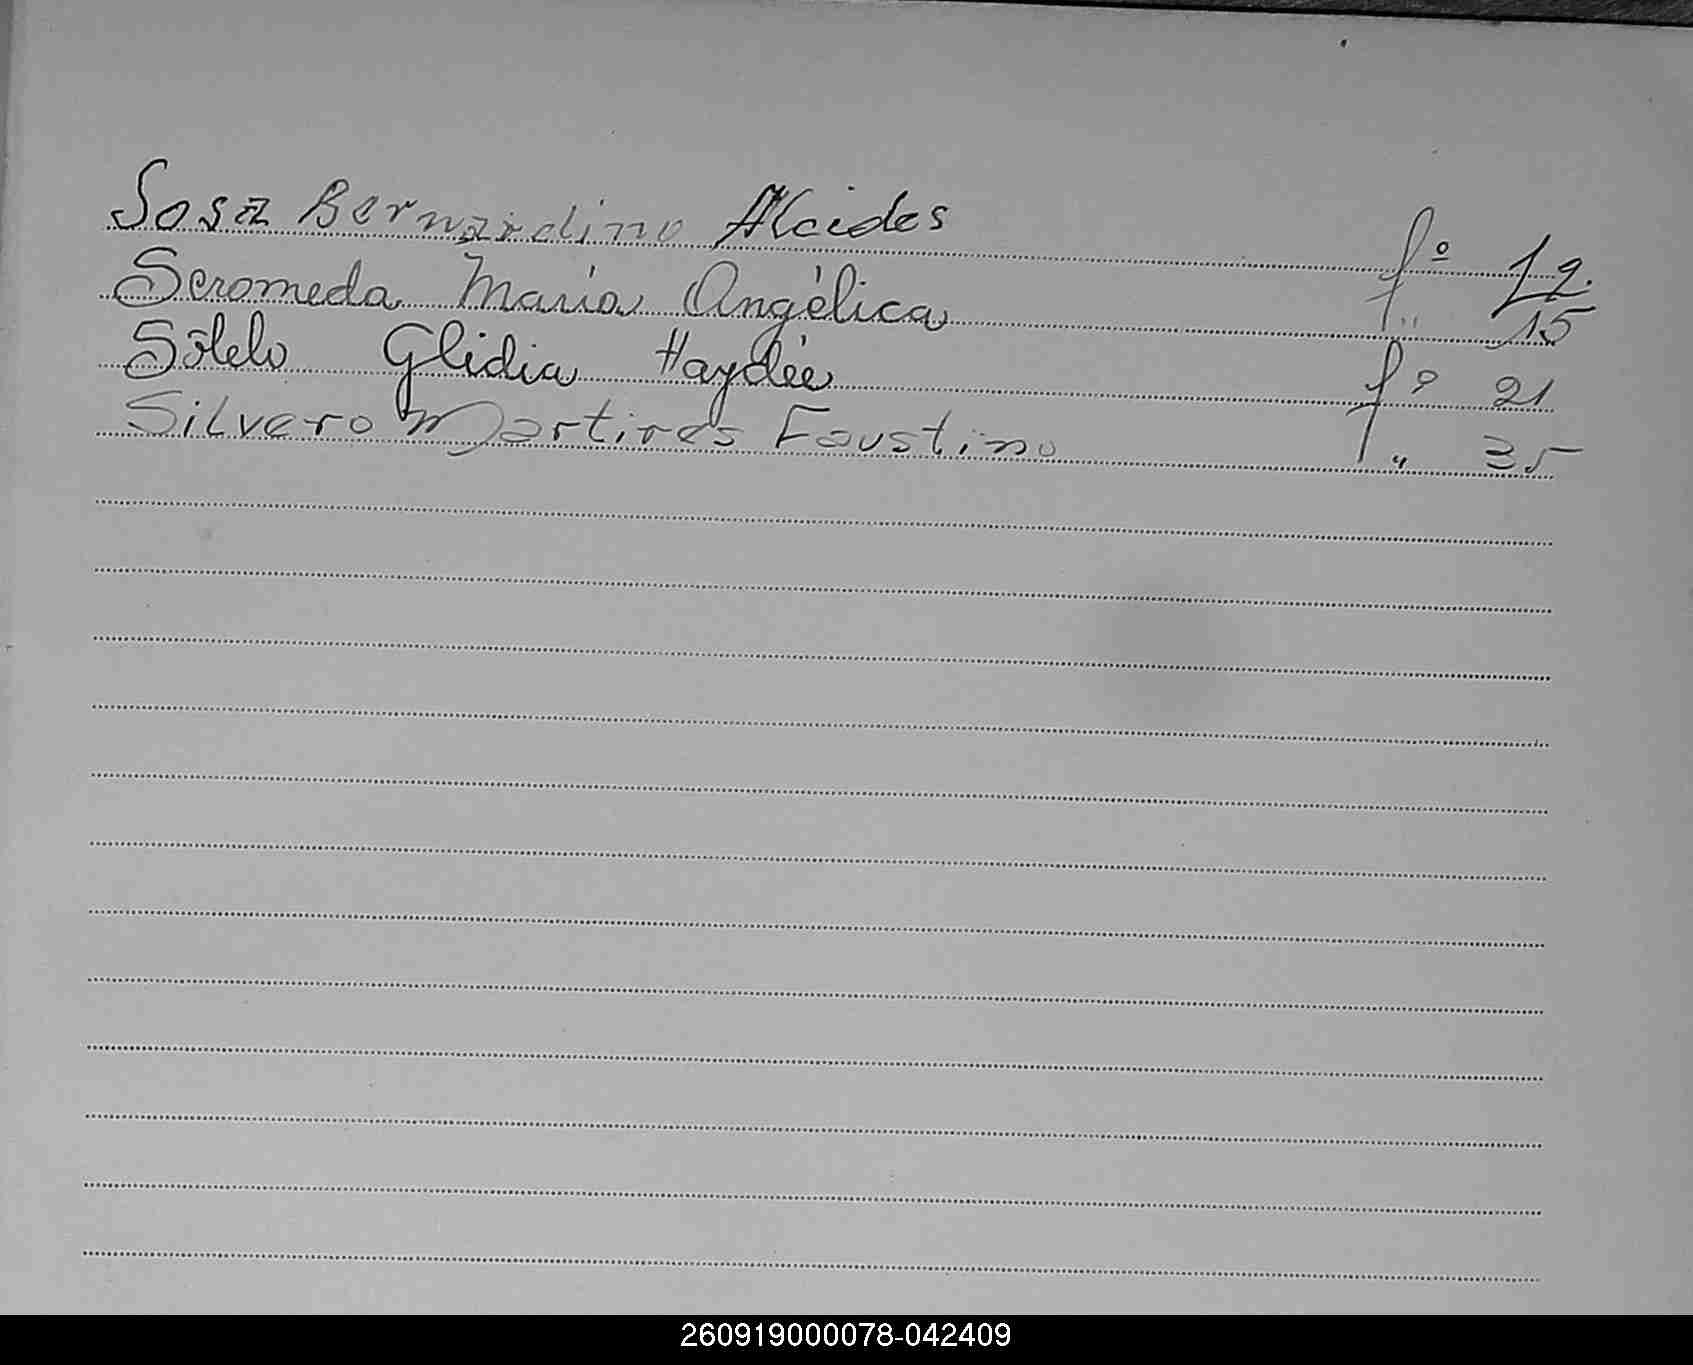 Sosa Bernardino Alcides fº 12.
Seromeda María Angélica f " 15
Sótelo Glidia Haydée fº 21
Silvero Martires Faustino f " 35
260919000078-042409